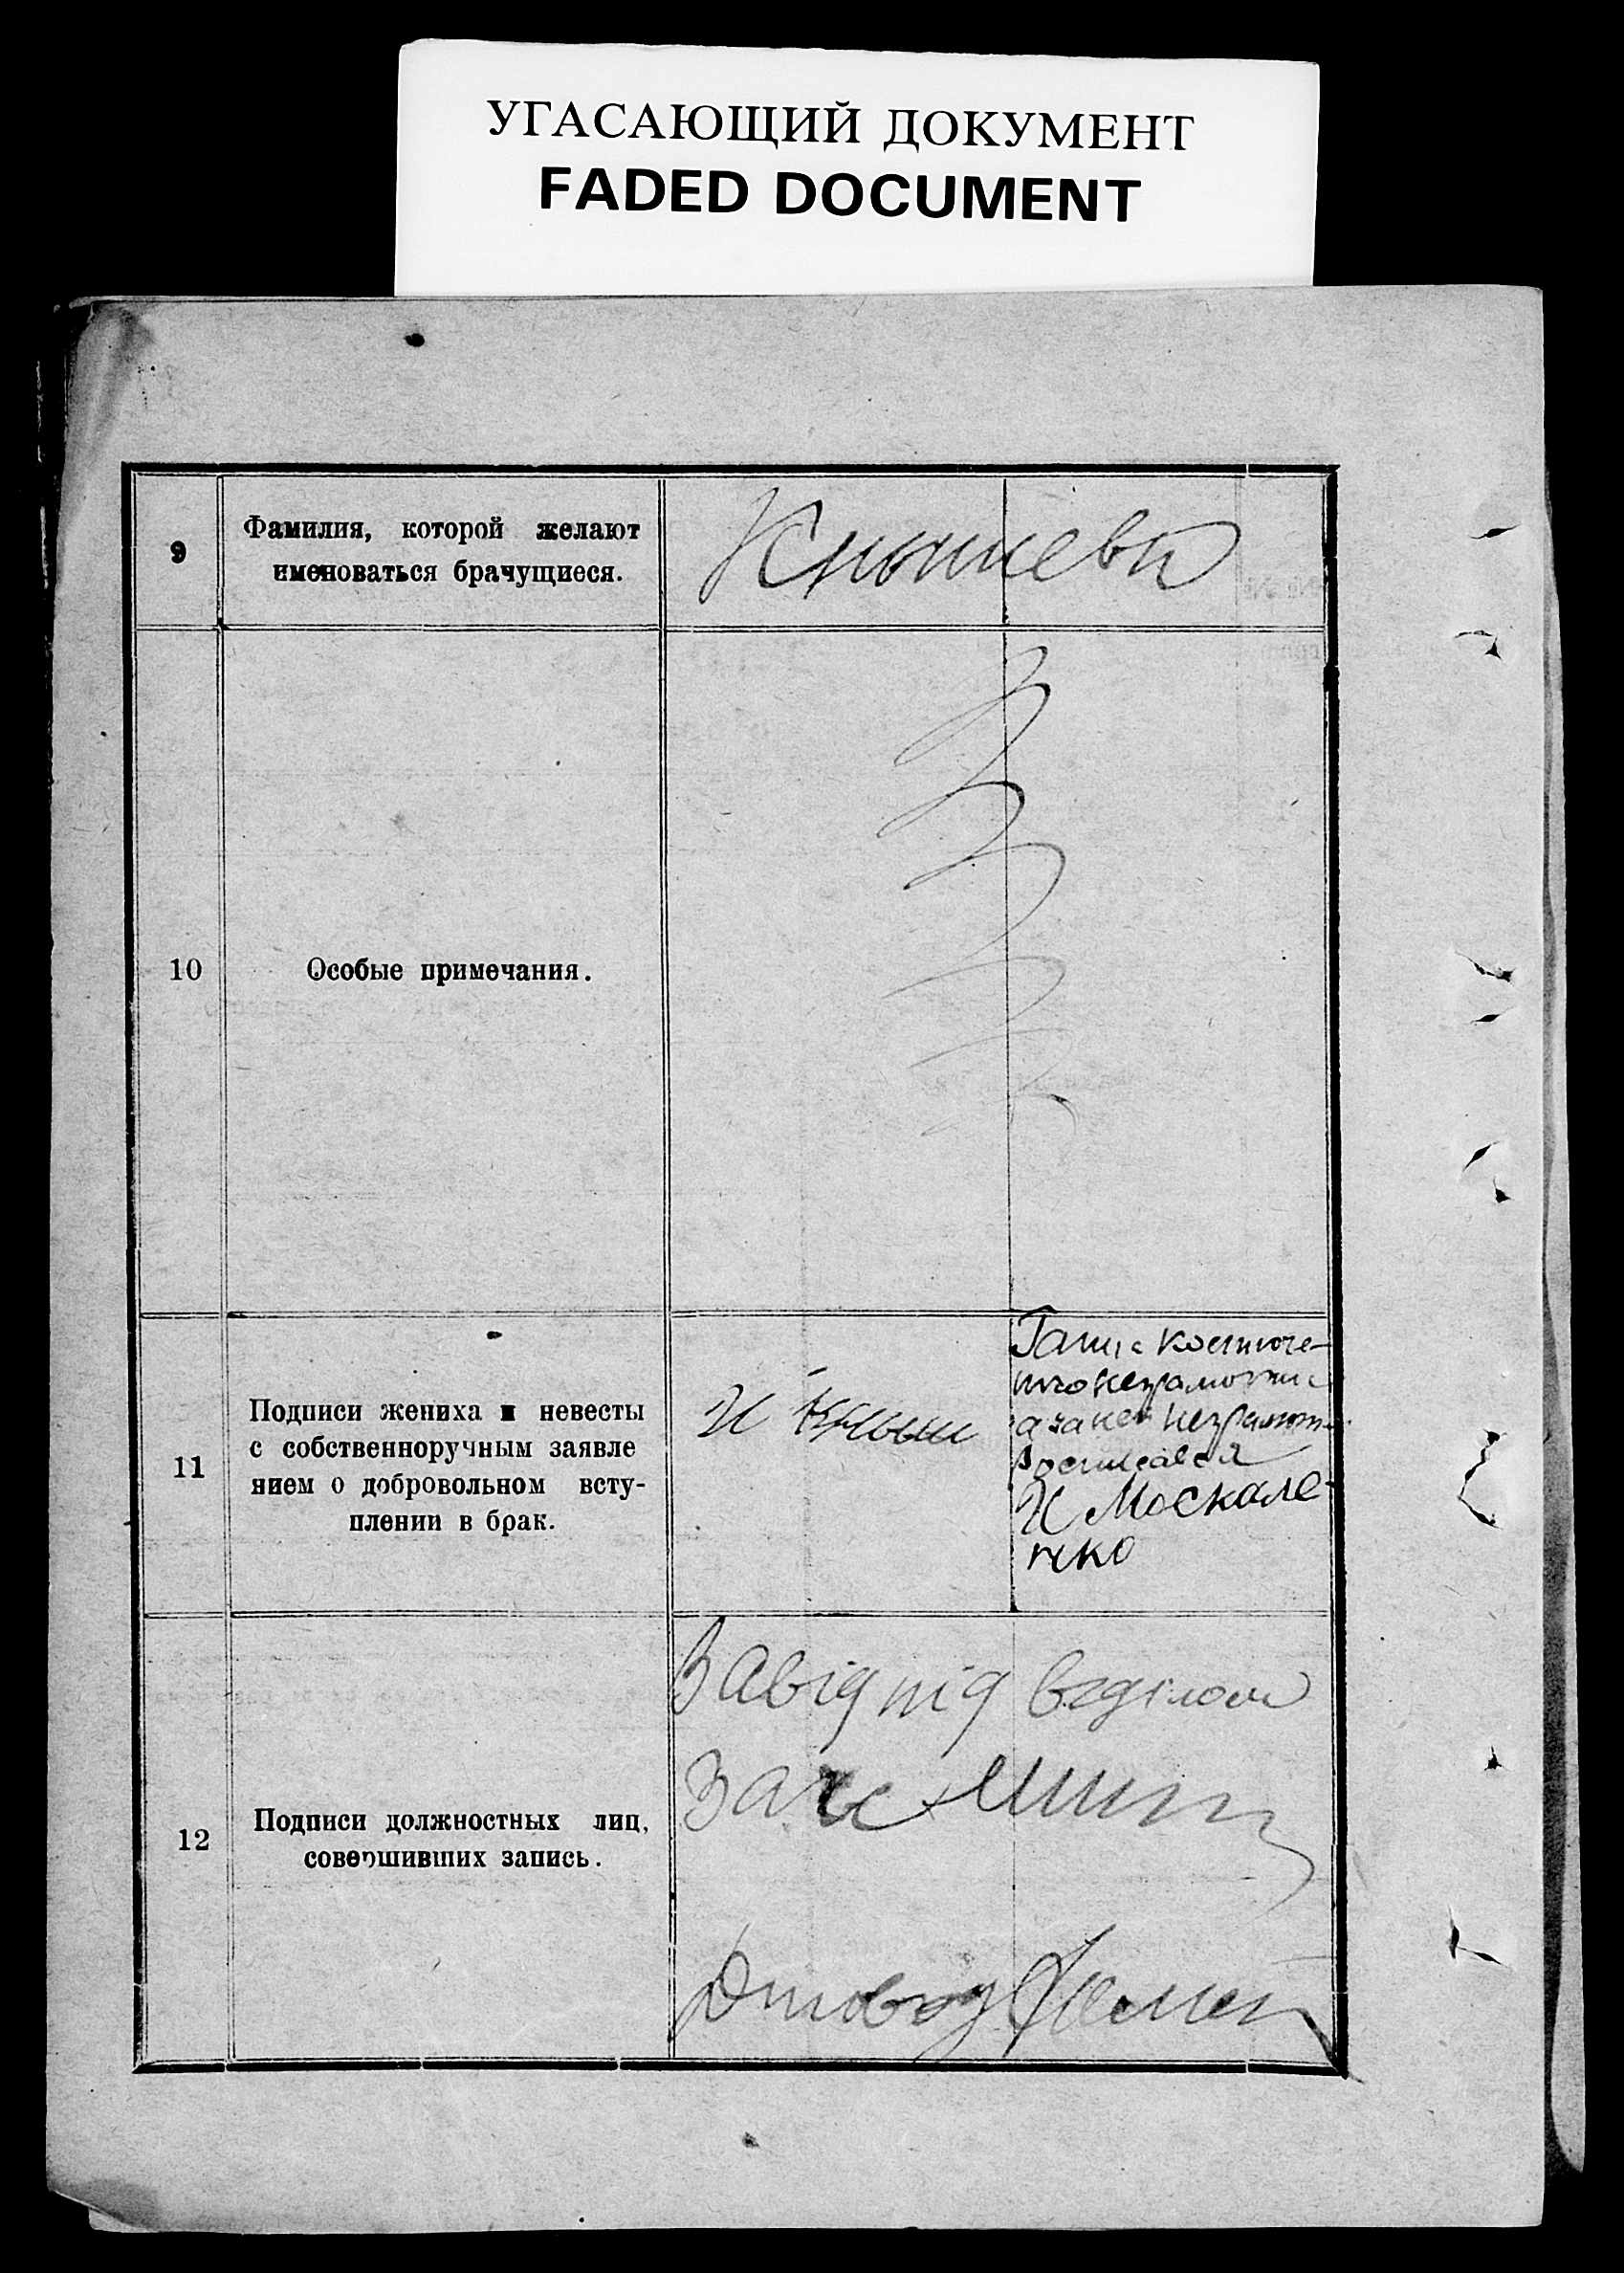 УГАСАЮЩИЙ ДОКУМЕНТ
FADED DOCUMENT
9
Фамилия, которой желают
именоваться брачущиеся.
Кнышеви
10
Особые примечания.
11
Подписи жениха и невесты
с собственноручным заявле
нием о добровольном всту-
плении в брак.
И Кныш
а за не
Росписався
И Москале-
нко
12
Подписи должностных лиц,
совершивших запись.
Завідпід
Загс
Діловод